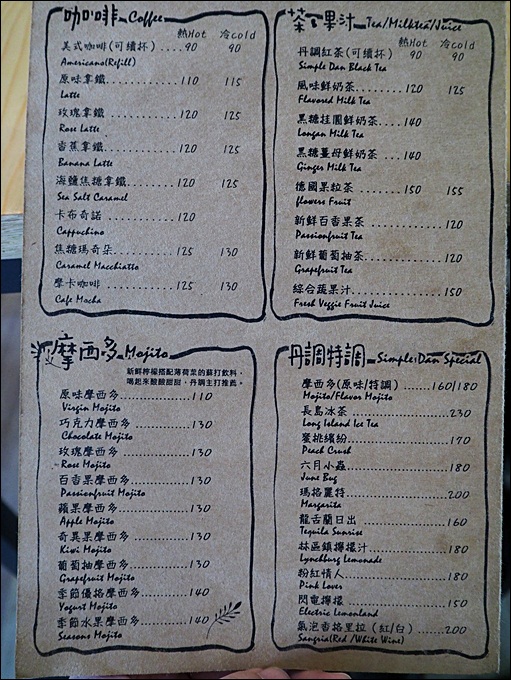 咖啡 Coffee
熱Hot 冷Cold
美式咖啡(可續杯)....90 90
Americano(Refill)
原味拿鐵..........110 115
Latte
玫瑰拿鐵..........120 125
Rose Latte
香蕉拿鐵..........120 125
Banana Latte
海鹽焦糖拿鐵.......120 125
Sea Salt Caramel
卡布奇諾..........120
Cappuchino
焦糖瑪奇朵.........125 130
Caramel Macchiatto
摩卡咖啡..........125 130
Cafe Mocha
茶、果汁 Tea/Milktea/Juice
熱Hot 冷Cold
丹調紅茶(可續杯) 90 90
Simple Dan Black Tea
風味鮮奶茶........120 125
Flavored Milk Tea
黑糖桂圓鮮奶茶....140
Longan Milk Tea
黑糖薑母鮮奶茶 ..140
Ginger Milk Tea
德國果粒茶 .......150 155
flowers Fruit
新鮮百香果茶 ............120
Passionfruit Tea
新鮮葡萄柚茶............120
Grapefruit Tea
綜合蔬果汁..............150
Fresh Veggie Fruit Juice
摩西多 Mojito
新鮮檸檬搭配薄荷葉的蘇打飲料,
喝起來酸酸甜甜,丹調主打推薦。
原味摩西多............110
Virgin Mojito
巧克力摩西多..........130
Chocolate Mojito
玫瑰摩西多............130
Rose Mojito
百香果摩西多..........130
Passionfruit Mojito
蘋果摩西多............130
Apple Mojito
奇異果摩西多..........130
Kiwi Mojito
葡萄柚摩西多..........130
Grapefruit Mojito
季節優格摩西多........140
Yogurt Mojito
季節水果摩西多........140
Seasons Mojito
丹調特調 Simple Dan Special
摩西多(原味/特調) ......160/180
Mojito/Flavor Mojito
長島冰茶 ................230
Long Island Ice Tea
蜜桃繽紛................170
Peach Crush
六月小蟲................180
June Bug
瑪格麗特................200
Margarita
龍舌蘭日出 ..............160
Tequila Sunrise
林區鎮檸檬汁............180
Lynchburg Lemonade
粉紅情人................180
Pink Lover
閃電檸檬 ................150
Electric Lemonland
氣泡香格里拉(紅/白)......200
Sangria(Red /White Wine)